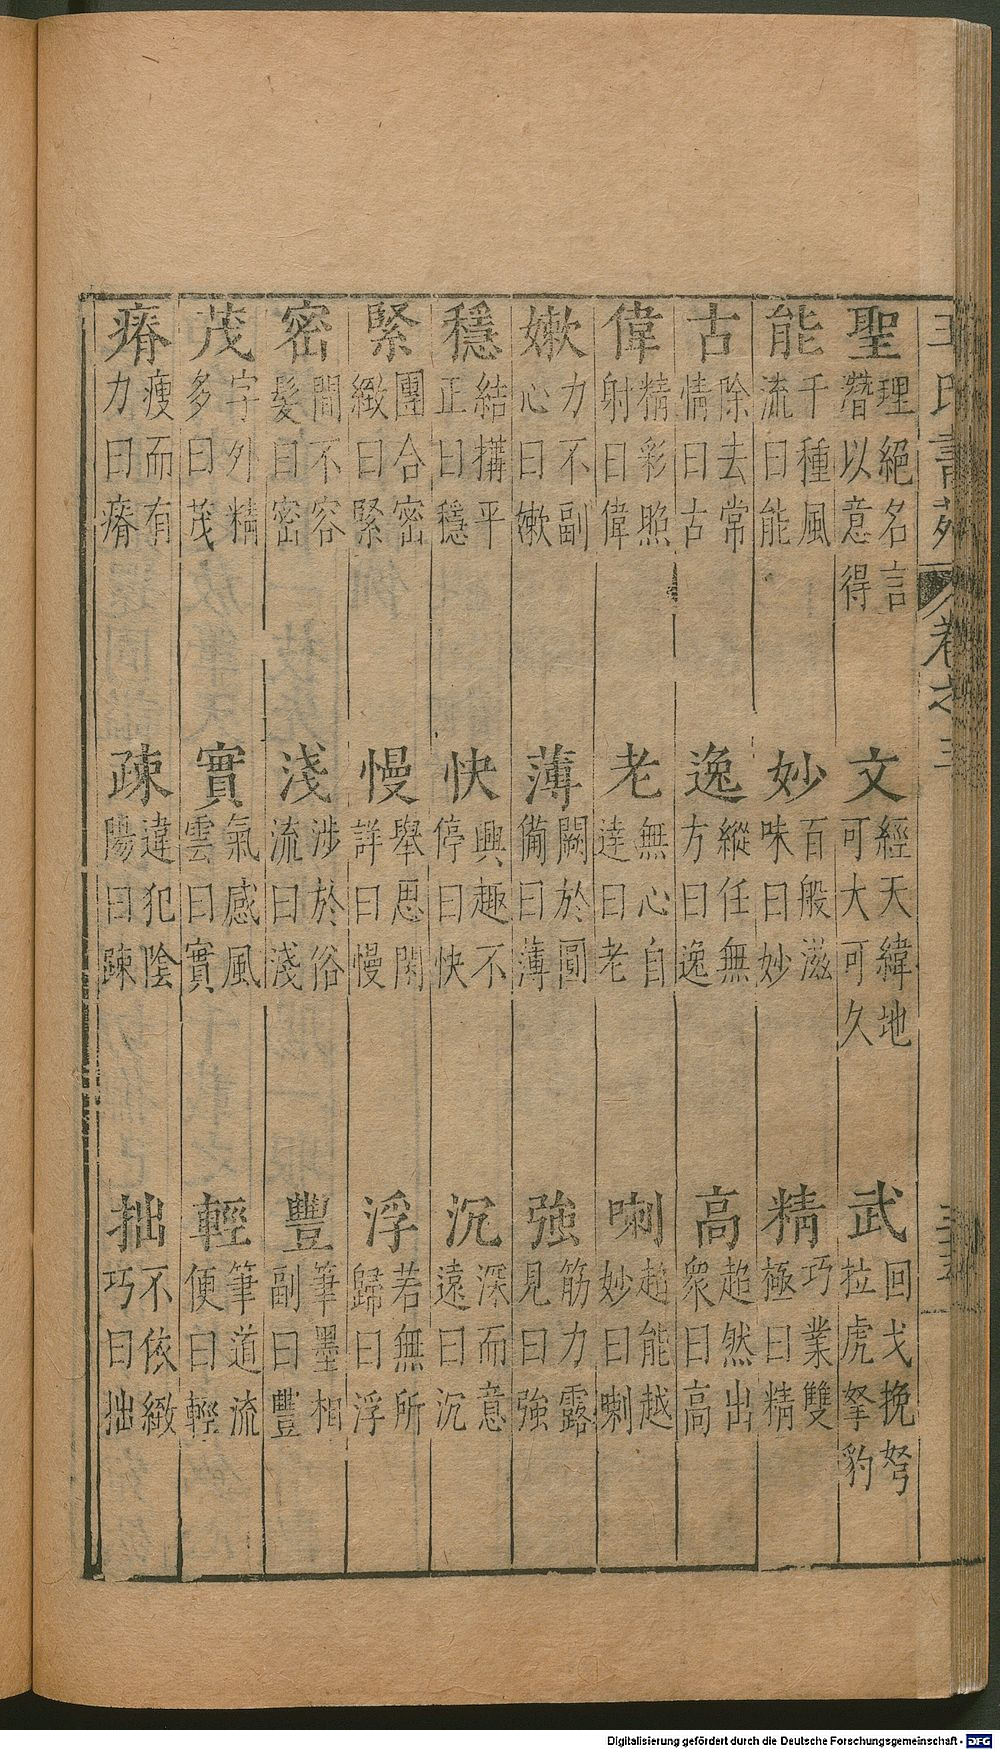 聖 理絕名言潛以意得 文 經天緯地可大可久 武 回戈挽弩拉虎拏豹
能 千種風流曰能 妙 百般滋味曰妙 精 巧業雙極曰精
古 除去常情曰古 逸 縱任無方曰逸 高 超然出衆曰高
偉 精彩照射曰偉 老 無心自達曰老 喇 超能越妙曰喇
嫰 力不副心曰嫰 薄 闕於圓備曰薄 強 筋力露見曰強
穩 結搆平正曰穩 快 興趣不停曰快 沉 深而意遠曰沉
緊 團合密緻曰緊 慢 舉思閑詳曰慢 浮 若無所歸曰浮
密 間不容髮曰密 淺 涉於俗流曰淺 豐 筆墨相副曰豐
茂 字外精多曰茂 實 氣感風雲曰實 輕 筆道流便曰輕
瘠 瘦而有力曰瘠 疎 違犯陰陽曰疎 拙 不依緻巧曰拙
Digitalisierung gefördert durch die Deutsche Forschungsgemeinschaft - DFG